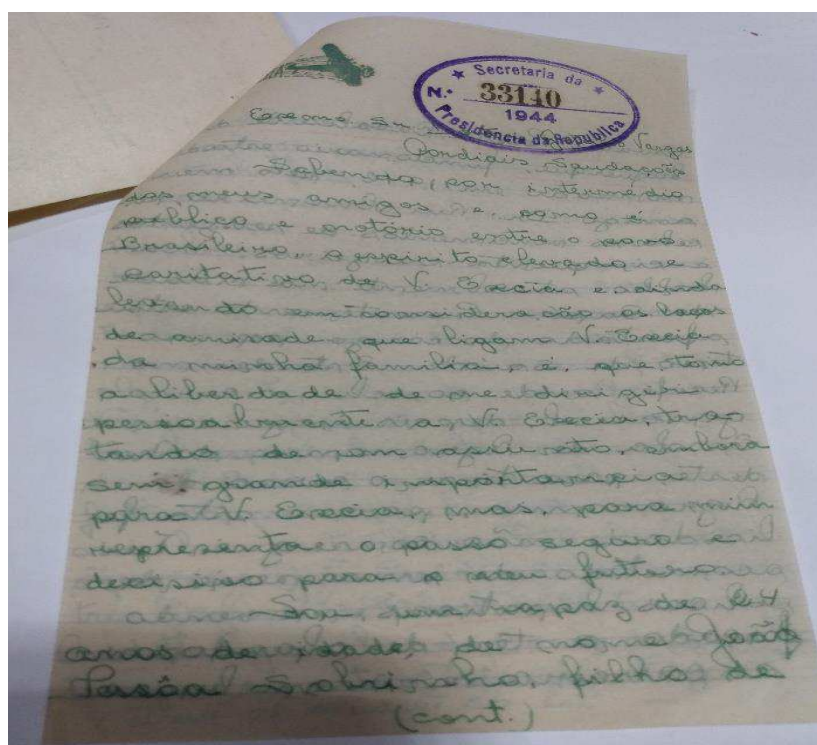 Secretaria da
N.º 33140
1944
Presidencia da Republica
Excmo Snr Vargas
Cordiais Saudações
Sabendo, por intermédio
dos meus amigos e como é
publico e notório entre o povo
Brasileiro, o espirito elevado e
caritativo de V. Excia e ainda
levando em consideração os laços
de amisade que ligam V. Excia
da minha familia, é que tomo
a liberdade de me dirigir
pessoalmente a V. Excia, tra
tando de um assunto, embora
sem grande importancia
para V. Excia, mas, para mim
representa o passo seguro e
decisivo para o meu futuro.
Sou um rapaz de 24
anos de idade, de nome João
Pessôa Sobrinho, filho de
(cont.)